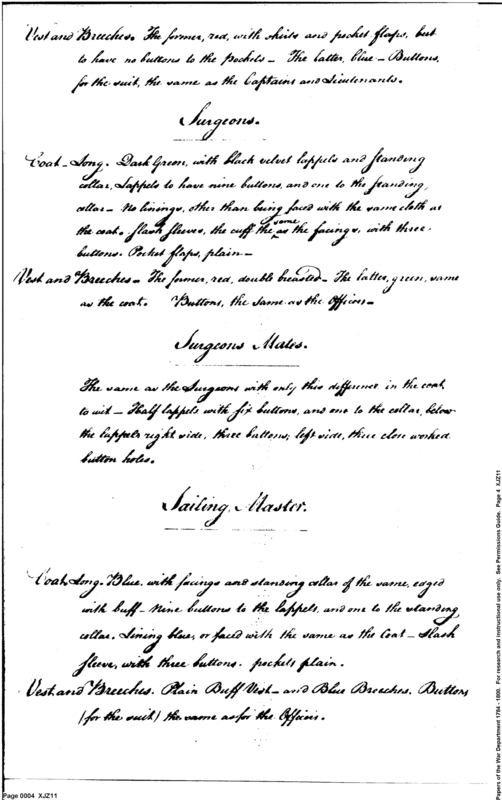 Vest and Breeches. The former, red, with skirts and pocket flaps, but
to have no buttons to the pockets — The latter, blue — Buttons,
for the suit, the same as the Captains and Lieutenants.
Surgeons.
Coat — Long. Dark Green, with black velvet lappels and standing
collar, Lappels to have nine buttons, and one to the standing
collar — No linings, other than being faced with the same cloth as
the coat. Slash Sleeves, the cuff the same as the facings, with three
buttons. Pocket flaps, plain —
Vest and Breeches — The former, red, double breasted — The latter, green, same
as the coat. Buttons, the same as the Officers —
Surgeons Mates.
The same as the Surgeons with only this difference in the coat,
to wit — Half lappels with six buttons, and one to the collar, below
the lappels right side, three buttons; left side, three close worked
button holes.
Sailing Master.
Coat, Long. Blue, with facings and standing collar of the same, edged
with buff — Nine buttons to the lappels, and one to the standing
collar. Lining blue, or faced with the same as the Coat — Slash
sleeve, with three buttons. pockets plain.
Vest and Breeches. Plain Buff Vest — and Blue Breeches. Buttons
(for the suit) the same as for the Officers.
Page 0004 XJZ11
Papers of the War Department 1784 - 1800. For research and instructional use only. See Permissions Guide. Page 4 XJZ11